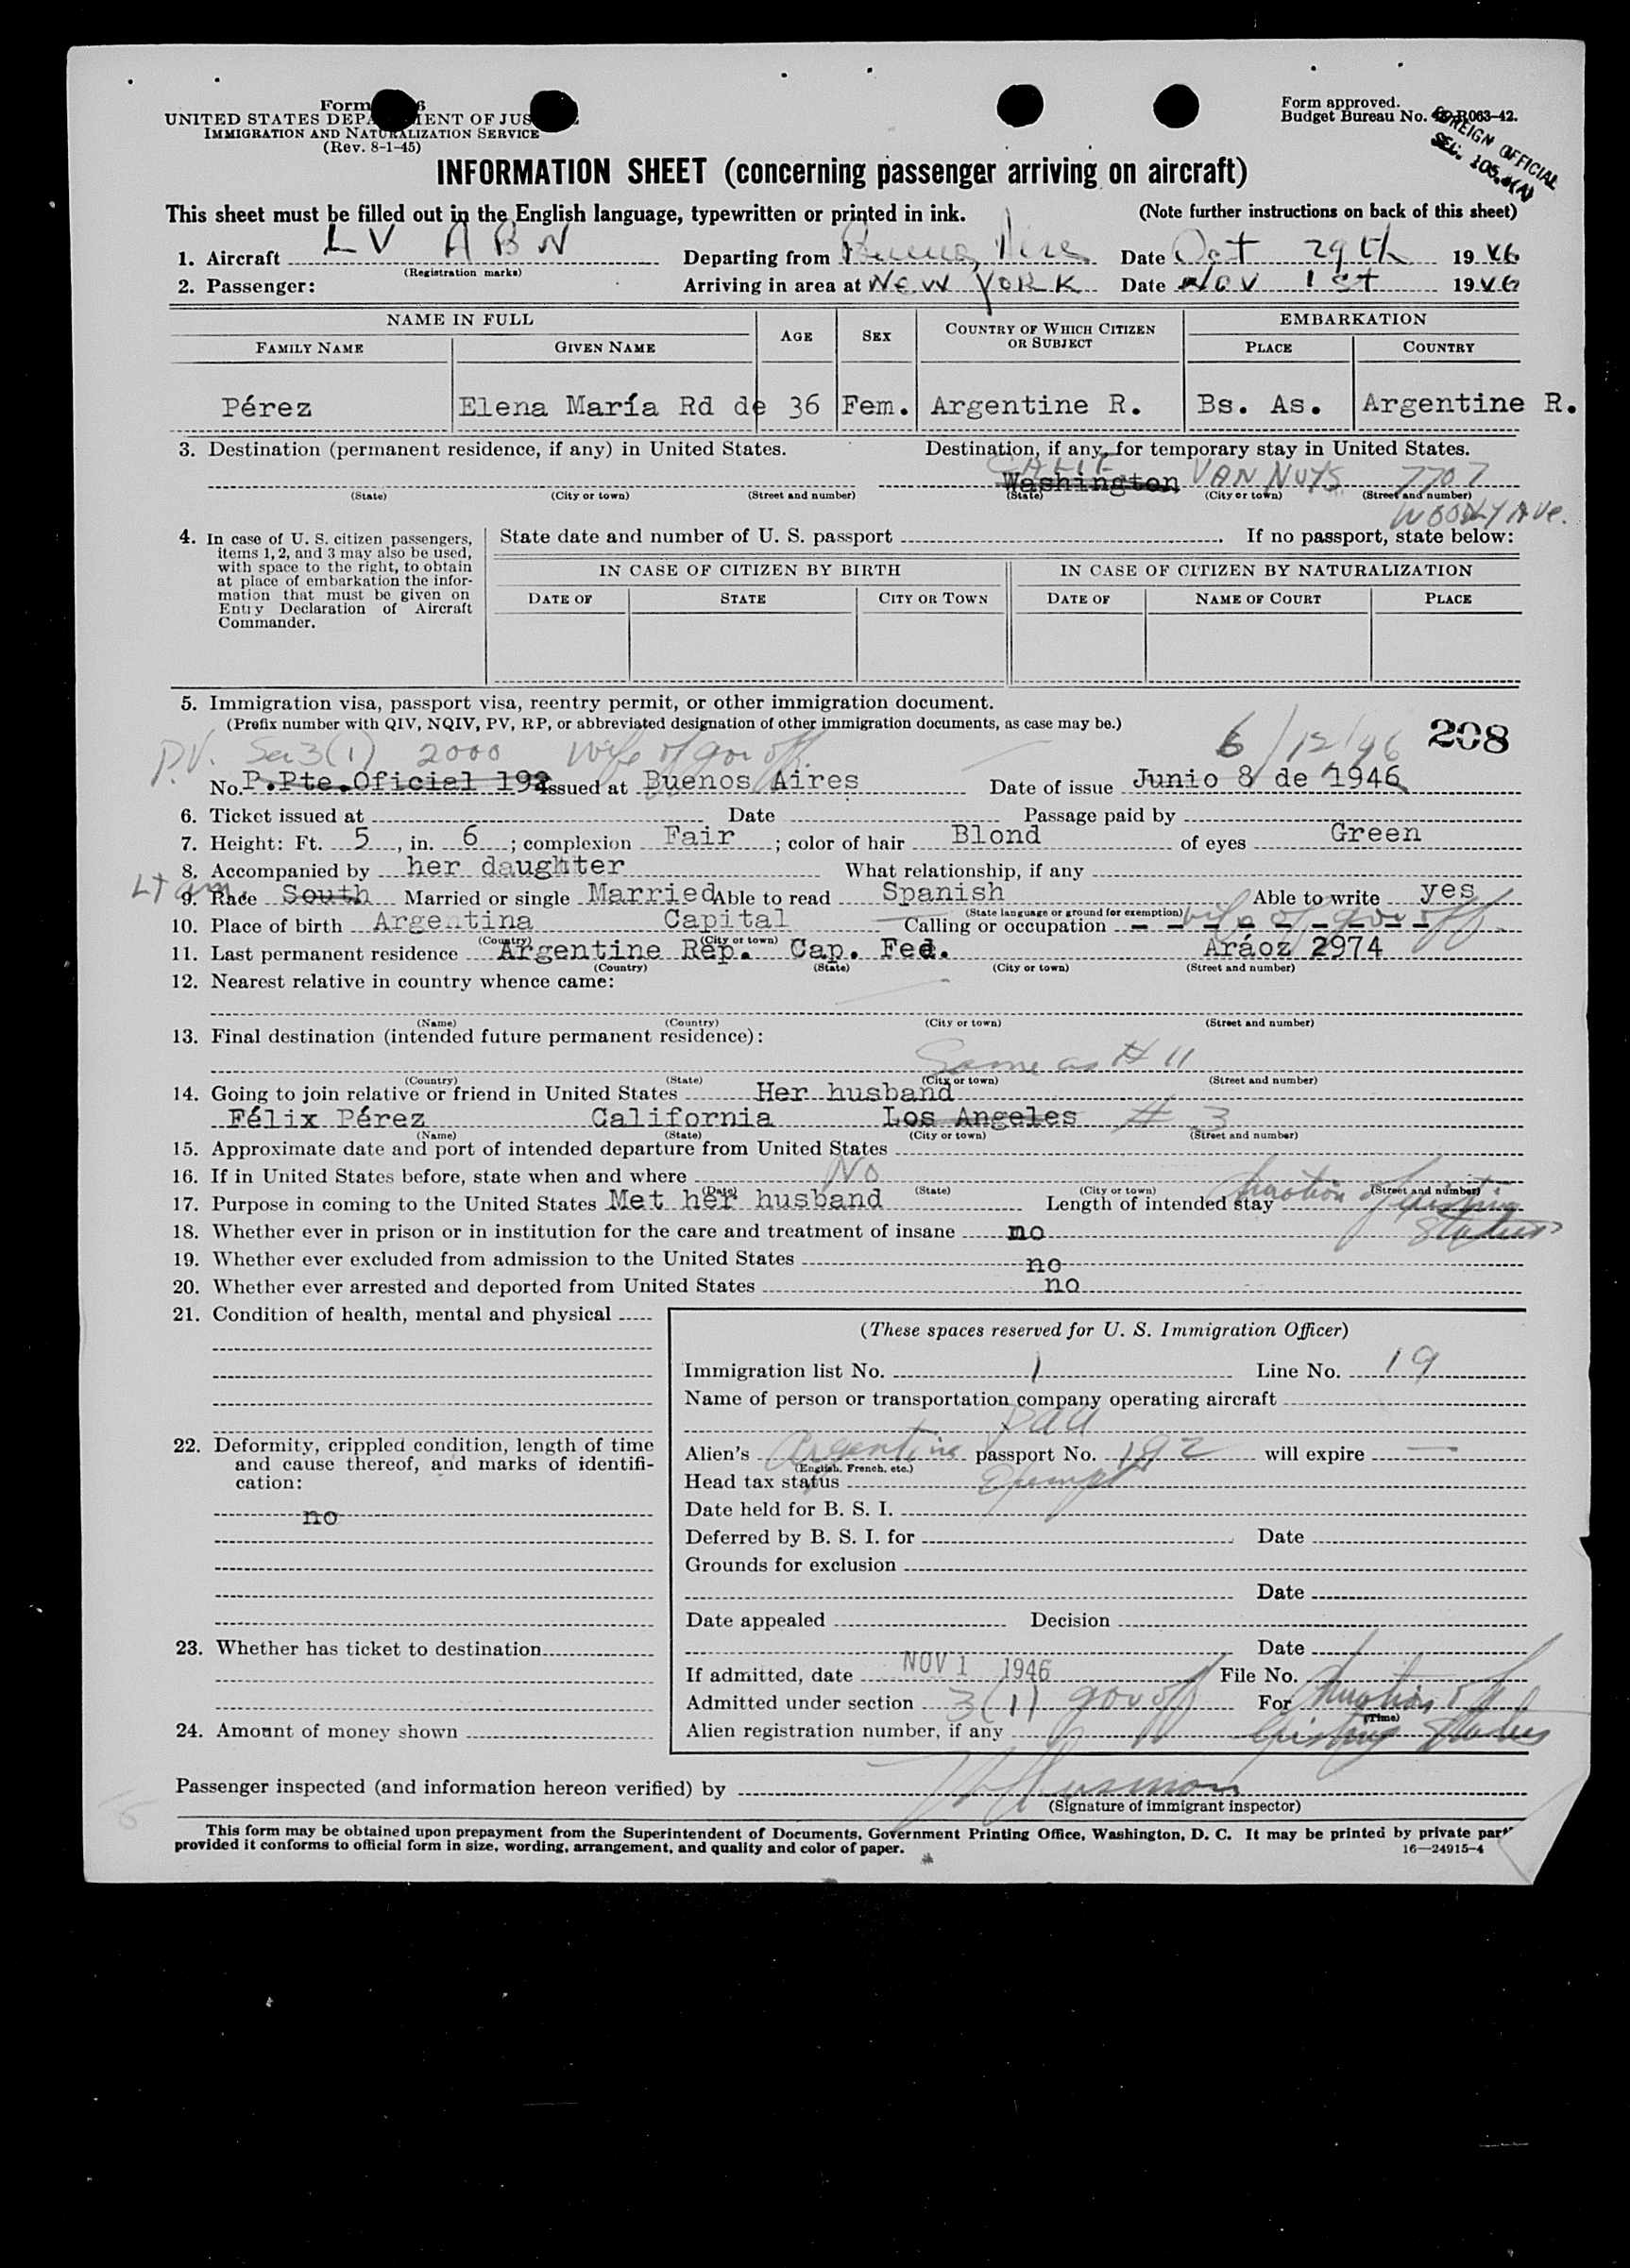 Form 6
UNITED STATES DEPARTMENT OF JUS
IMMIGRATION AND NATURALIZATION SERVICE
(Rev. 8-1-45)
Form approved.
Budget Bureau No. R063-42.
FOREIGN OFFICIAL
SEC. 105.
INFORMATION SHEET (concerning passenger arriving on aircraft)
This sheet must be filled out in the English language, typewritten or printed in ink. (Note further instructions on back of this sheet)
1. Aircraft LV ABN Departing from Buenos Aires Date Oct 29th 1946
(Registration marks)
2. Passenger: Arriving in area at NEW YORK Date Nov 1st 1946
NAME IN FULL AGE SEX COUNTRY OF WHICH CITIZEN OR SUBJECT EMBARKATION
FAMILY NAME GIVEN NAME PLACE COUNTRY
Pérez Elena María Rd de 36 Fem. Argentine R. Bs. As. Argentine R.
3. Destination (permanent residence, if any) in United States. Destination, if any, for temporary stay in United States.
CALIF
Washington VAN NUYS 7707
(State) (City or town) (Street and number) (State) (City or town) (Street and number)
WOODLY AVE.
4. In case of U. S. citizen passengers, items 1, 2, and 3 may also be used, with space to the right, to obtain at place of embarkation the information that must be given on Entry Declaration of Aircraft Commander.
State date and number of U. S. passport . If no passport, state below:
IN CASE OF CITIZEN BY BIRTH IN CASE OF CITIZEN BY NATURALIZATION
DATE OF STATE CITY OR TOWN DATE OF NAME OF COURT PLACE
5. Immigration visa, passport visa, reentry permit, or other immigration document.
(Prefix number with QIV, NQIV, PV, RP, or abbreviated designation of other immigration documents, as case may be.)
P.V. Sec 3(1) 2000 Wife of gov off. 6/12/46 208
No. P.Pte.Oficial 192 issued at Buenos Aires Date of issue Junio 8 de 1946
6. Ticket issued at Date Passage paid by
7. Height: Ft. 5, in. 6; complexion Fair; color of hair Blond of eyes Green
8. Accompanied by her daughter What relationship, if any
Lt am.
9. Race South Married or single Married Able to read Spanish Able to write yes
(State language or ground for exemption)
10. Place of birth Argentina Capital Calling or occupation wife of gov off.
(Country) (City or town)
11. Last permanent residence Argentine Rep. Cap. Fed. Aráoz 2974
(Country) (State) (City or town) (Street and number)
12. Nearest relative in country whence came:
(Name) (Country) (City or town) (Street and number)
13. Final destination (intended future permanent residence):
Same as # 11
(Country) (State) (City or town) (Street and number)
14. Going to join relative or friend in United States Her husband
Félix Pérez California Los Angeles # 3
(Name) (State) (City or town) (Street and number)
15. Approximate date and port of intended departure from United States
16. If in United States before, state when and where No
(Date) (State) (City or town) (Street and number)
17. Purpose in coming to the United States Met her husband Length of intended stay duration of existing status
18. Whether ever in prison or in institution for the care and treatment of insane no
19. Whether ever excluded from admission to the United States no
20. Whether ever arrested and deported from United States no
21. Condition of health, mental and physical
(These spaces reserved for U. S. Immigration Officer)
Immigration list No. 1 Line No. 19
Name of person or transportation company operating aircraft
22. Deformity, crippled condition, length of time and cause thereof, and marks of identification:
no
Alien's Argentine passport No. 192 will expire —
(English, French, etc.)
Head tax status Exempt
Date held for B. S. I.
Deferred by B. S. I. for Date
Grounds for exclusion
Date
Date appealed Decision
23. Whether has ticket to destination
Date
If admitted, date NOV 1 1946 File No.
Admitted under section 3(1) gov off For duration of
(Time)
24. Amount of money shown
Alien registration number, if any existing status
Passenger inspected (and information hereon verified) by
(Signature of immigrant inspector)
This form may be obtained upon prepayment from the Superintendent of Documents, Government Printing Office, Washington, D. C. It may be printed by private part
provided it conforms to official form in size, wording, arrangement, and quality and color of paper. 16—24915-4